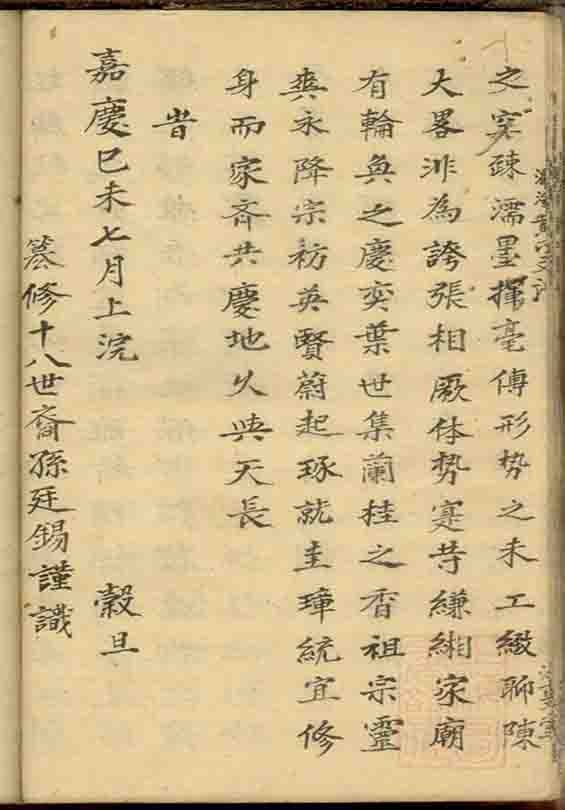 之疎濡墨揮毫傳形势之未工緻聊陳
大畧非為誇張相厥体势寔縑緗家廟
有輪奐之慶奕葉世集蘭桂之香祖宗靈
爽永降宗祊英賢蔚起琢就圭璋統宜修
身而家斉共慶地久與天長
旹
嘉慶己未七月上浣 穀旦
纂修十八世裔孫廷錫謹識